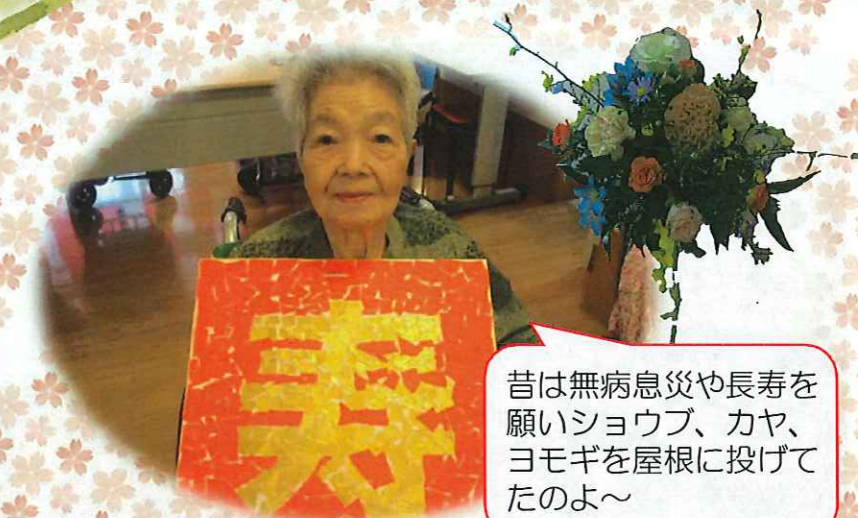 寿
昔は無病息災や長寿を
願いショウブ、カヤ、
ヨモギを屋根に投げて
たのよ～